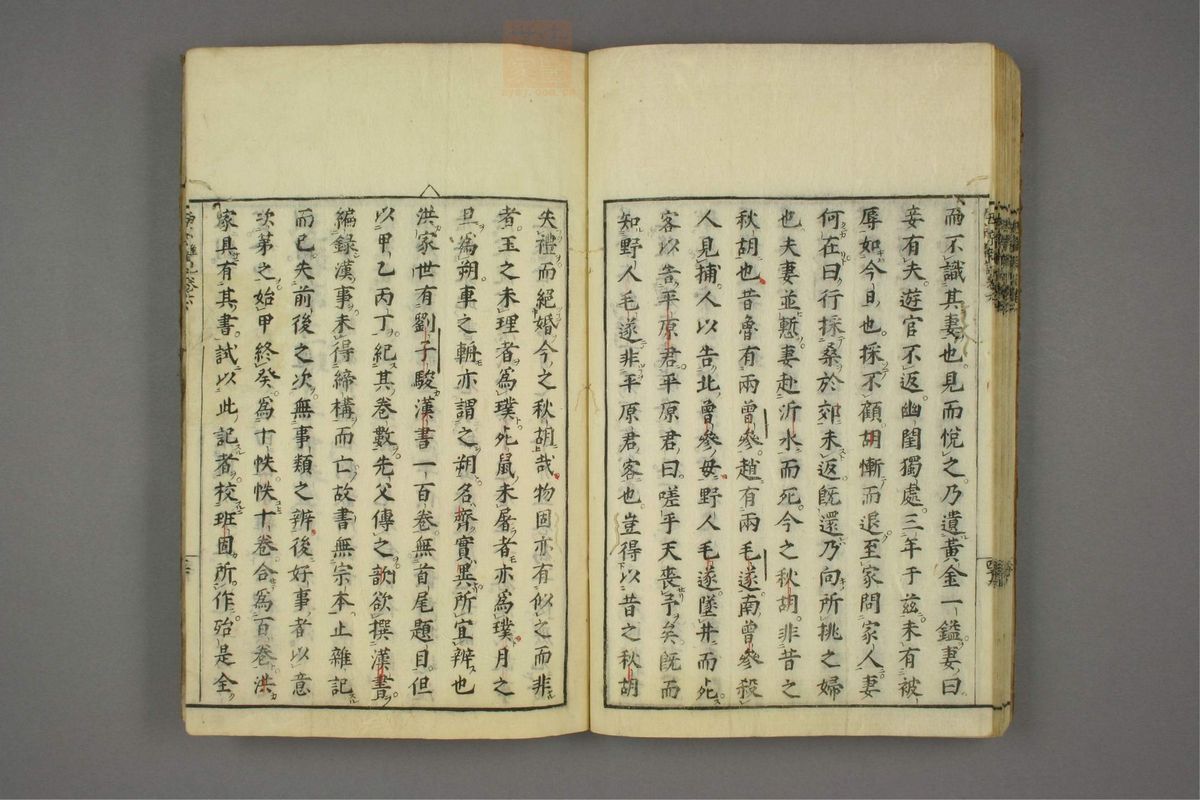 而不識其妻也見而悅之乃遺黃金一鎰妻曰
妾有夫遊宦不返幽閨獨處三年于茲未有被
辱如今日也採不顧胡慚而退至家問家人妻
何在曰行採桑於郊未返既還乃向所挑之婦
也夫妻並慙妻赴沂水而死今之秋胡非昔之
秋胡也昔魯有兩曾參趙有兩毛遂南曾參殺
人見捕人以告北曾參母野人毛遂墜井而死
客以告平原君平原君曰嗟乎天喪予矣既而
知野人毛遂非平原君客也豈得以昔之秋胡
失禮而絕婚今之秋胡哉物固亦有似之而非
者玉之未理者為璞死鼠未屠者亦為璞月之
旦為朔車之輈亦謂之朔名齊實異所宜辨也
洪家世有劉子駿漢書一百卷無首尾題目但
以甲乙丙丁紀其卷數先父傳之歆欲撰漢書
編錄漢事未得締構而亡故書無宗本止雜記
而已失前後之次無事類之辨後好事者以意
次第之始甲終癸為十帙帙十卷合為百卷洪
家具有其書試以此記者校班固所作殆是全